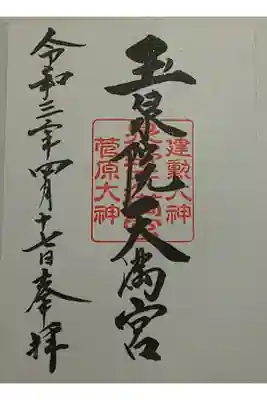 玉泉院天満宮
建勲大神
菅原大神
令和三年四月十七日奉拝